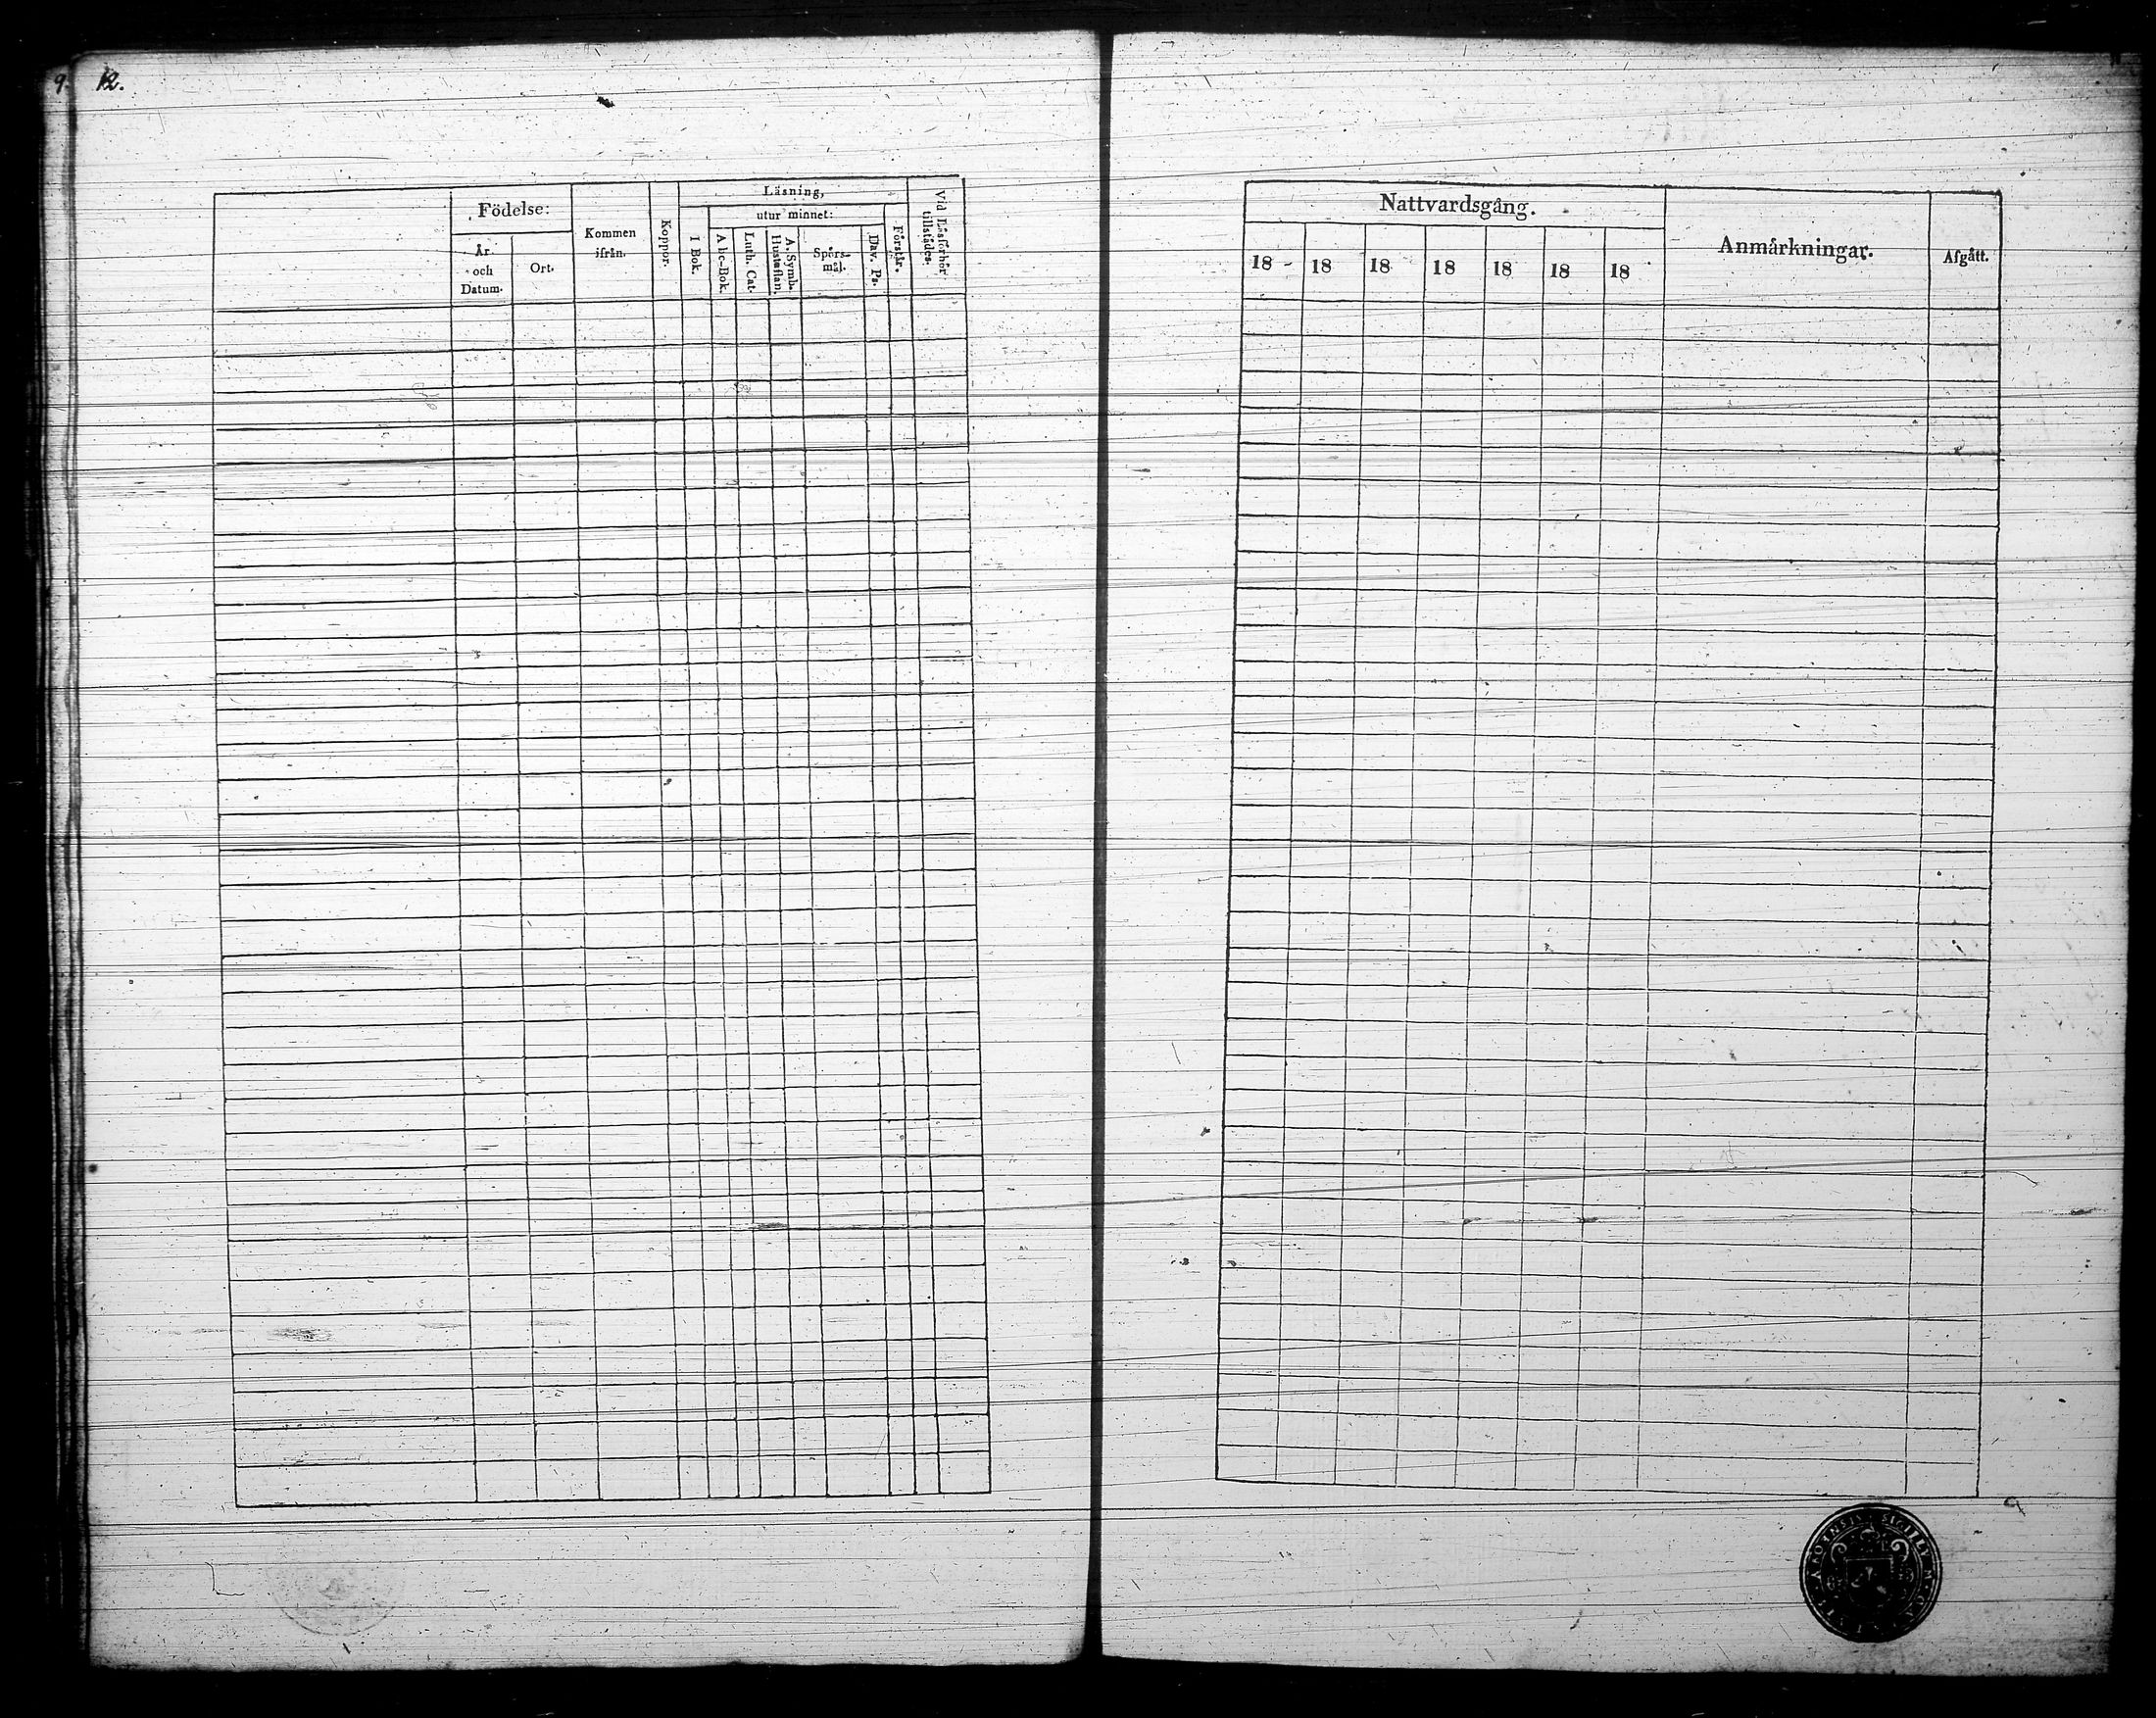 9.
12.
Födelse:
År
och
Datum.
Ort.
Kommen
ifrån.
Koppor.
Läsning,
I Bok.
utur minnet:
A bc-Bok.
Luth. Cat.
A. Symb.
Hustaflan.
Spörs-
mål.
Dav. Ps.
Förstår.
Vid Läsförhör
tillstädes.
Nattvardsgång.
18 18 18 18 18 18 18
Anmårkningar.
Afgått.
SIGILLVM